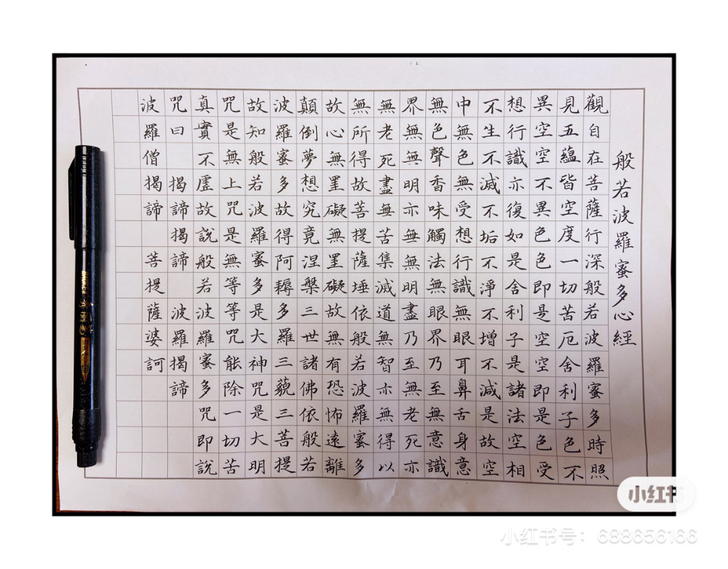 般若波羅蜜多心經
觀自在菩薩行深般若波羅蜜多時照
見五蘊皆空度一切苦厄舍利子色不
異空空不異色色即是空空即是色受
想行識亦復如是舍利子是諸法空相
不生不滅不垢不淨不增不減是故空
中無色無受想行識無眼耳鼻舌身意
無色聲香味觸法無眼界乃至無意識
界無無明亦無無明盡乃至無老死亦
無老死盡無苦集滅道無智亦無得以
無所得故菩提薩埵依般若波羅蜜多
故心無罣礙無罣礙故無有恐怖遠離
顛倒夢想究竟涅槃三世諸佛依般若
波羅蜜多故得阿耨多羅三藐三菩提
故知般若波羅蜜多是大神咒是大明
咒是無上咒是無等等咒能除一切苦
真實不虛故說般若波羅蜜多咒即說
咒曰 揭諦揭諦 波羅揭諦
波羅僧揭諦 菩提薩婆訶
小红书
小红书号：688656166